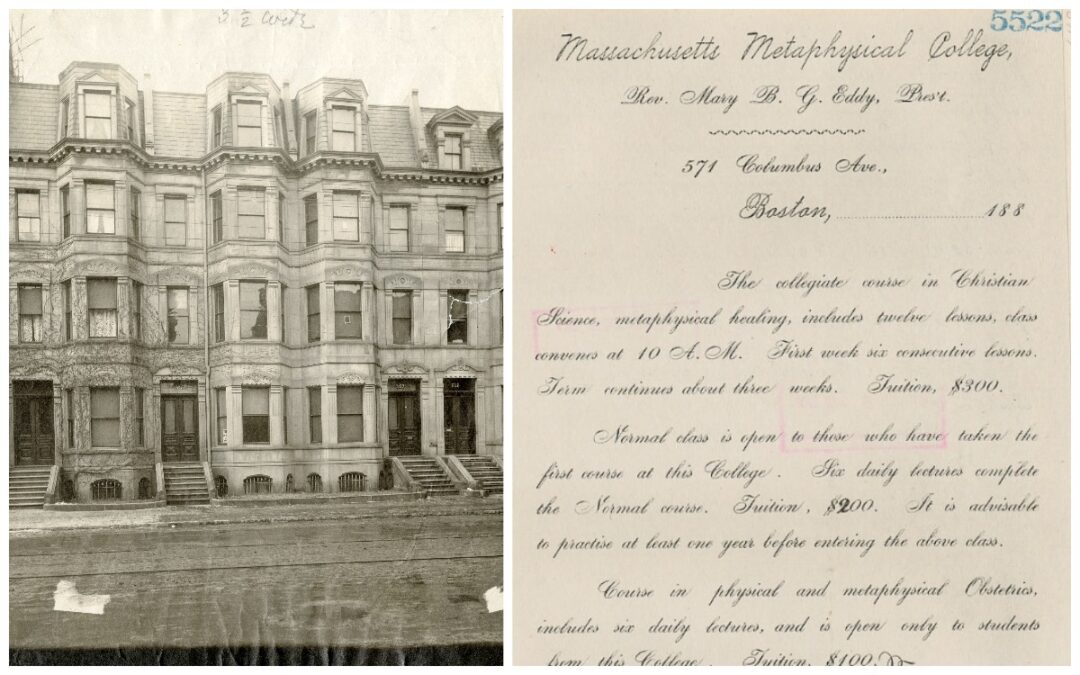 3 1/2
5522
Massachusetts Metaphysical College,
Rev. Mary B. G. Eddy, Pres't.
571 Columbus Ave.,
Boston, 188
The collegiate course in Christian
Science, metaphysical healing, includes twelve lessons, class
convenes at 10 A. M. First week six consecutive lessons.
Term continues about three weeks. Tuition, $300.
Normal class is open to those who have taken the
first course at this College. Six daily lectures complete
the Normal course. Tuition, $200. It is advisable
to practise at least one year before entering the above class.
Course in physical and metaphysical Obstetrics,
includes six daily lectures, and is open only to students
from this College. Tuition, $100.